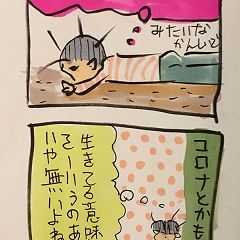 みたいな
かんじで
コロナとかも
生きてる意味
そーいうのあ
いや無いよね